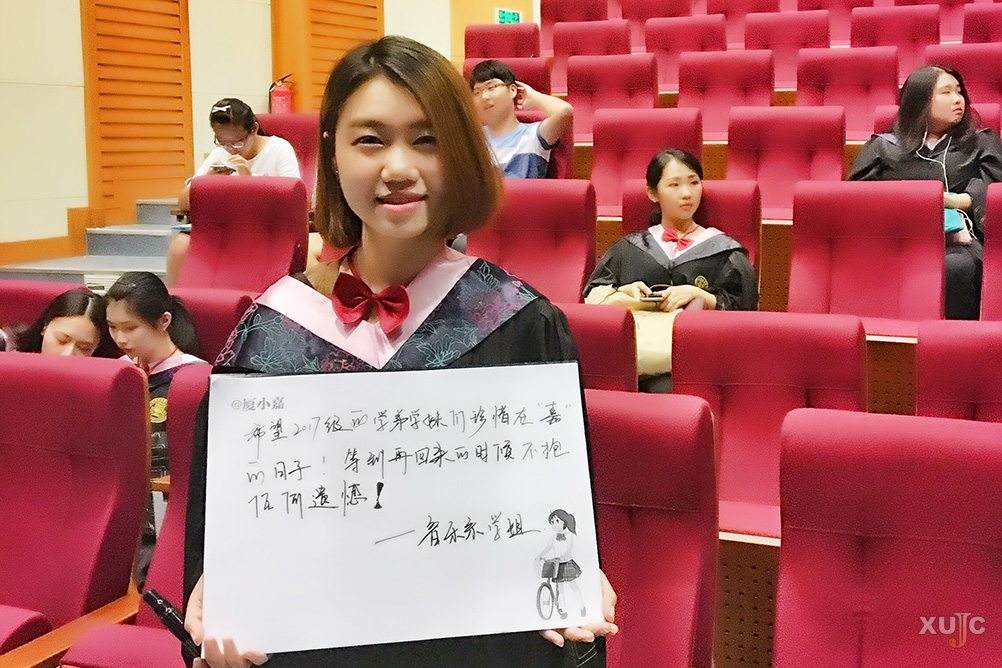 @厦小嘉
希望2017级的学弟学妹们珍惜在"嘉"
的日子！等到再回来的时候不抱
任何遗憾！
——音乐系学姐
XUJC